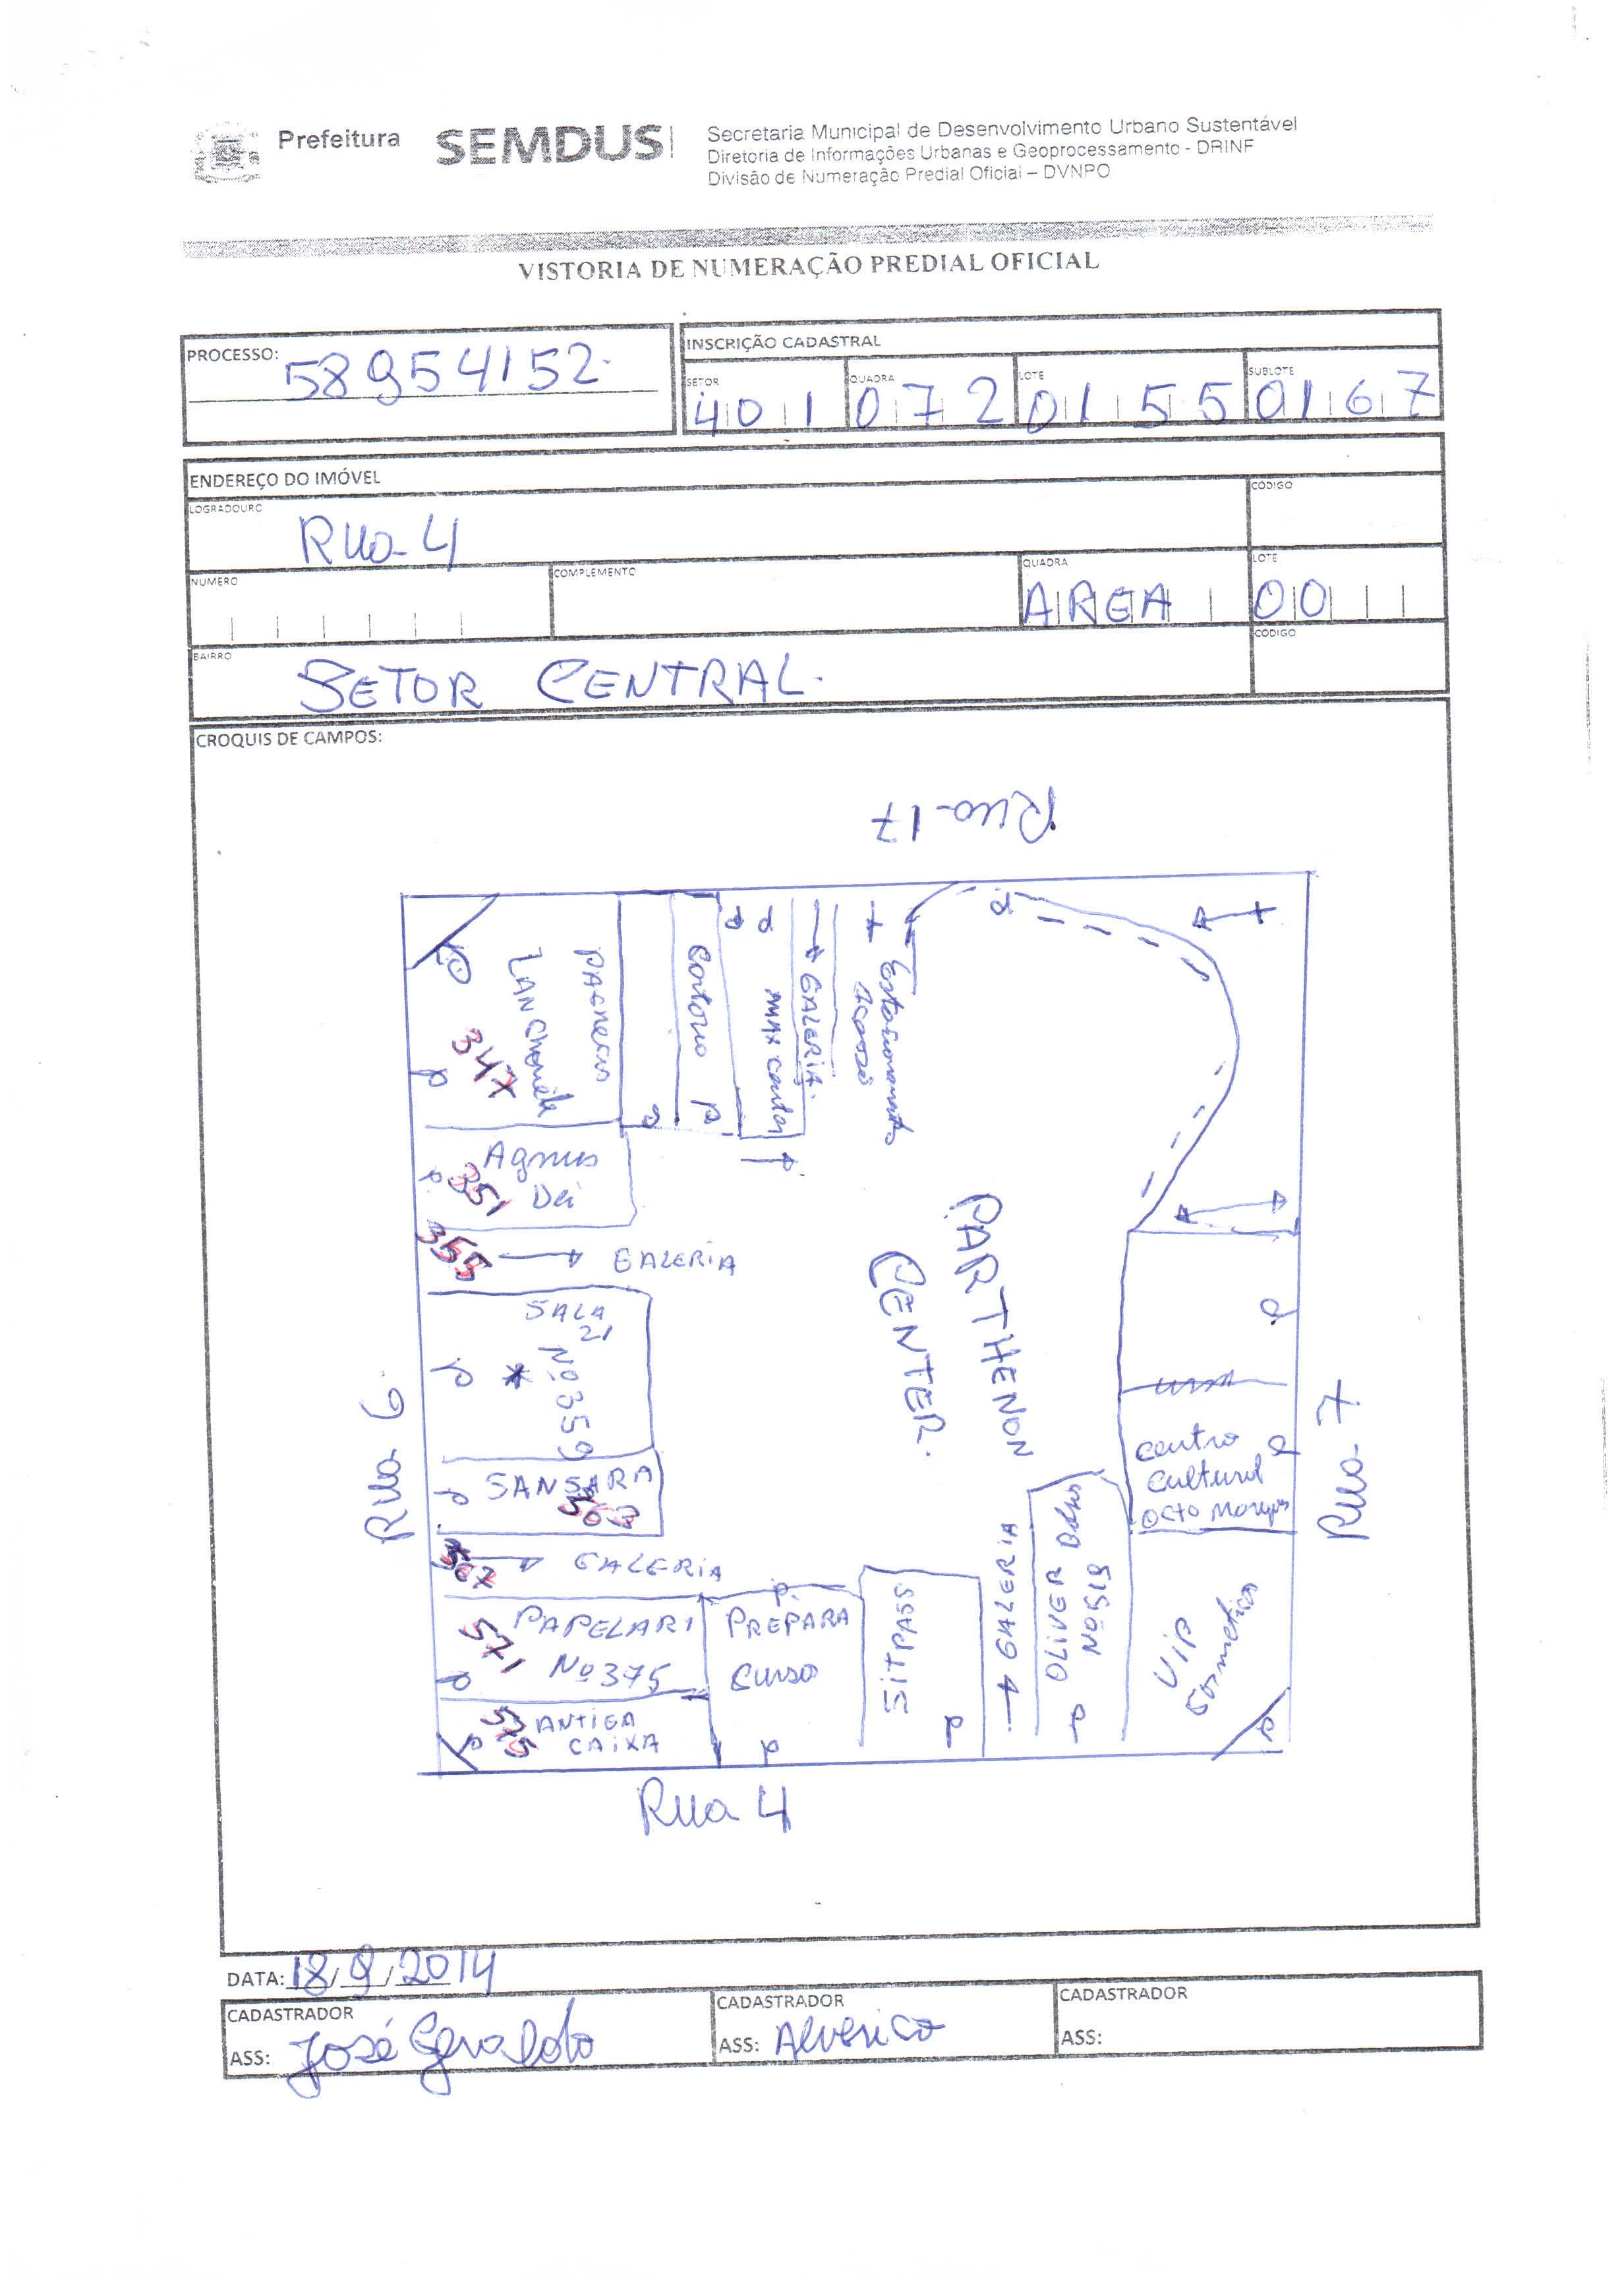 Prefeitura SEMDUS
Secretaria Municipal de Desenvolvimento Urbano Sustentável
Diretoria de Informações Urbanas e Geoprocessamento - DRINF
Divisão de Numeração Predial Oficial – DVNPO
VISTORIA DE NUMERAÇÃO PREDIAL OFICIAL
PROCESSO: 58954152
INSCRIÇÃO CADASTRAL
SETOR QUADRA LOTE SUBLOTE
401 072 0155 0167
ENDEREÇO DO IMÓVEL
LOGRADOURO CÓDIGO
Rua 4
NUMERO COMPLEMENTO QUADRA LOTE
AREA 00
BAIRRO CÓDIGO
SETOR CENTRAL.
CROQUIS DE CAMPOS:
Rua-17
347
Contorno
MAX
GALERIA
Estacionamento
Agnus
Dei
351
355
GALERIA
PARTHENON
CENTER.
SALA
21
Nº 359
Rua 6
SANSARA
GALERIA
PAPELARI
Nº 375
571
ANTIGA
CAIXA
575
PREPARA
Curso
SITPASS
GALERIA
OLIVER
Nº 519
Centro
Cultural
OCTO Marques
VIP
Cosmeticos
Rua 7
Rua 4
DATA: 18/9/2014
CADASTRADOR
ASS: José Geraldo
CADASTRADOR
ASS: Alverico
CADASTRADOR
ASS: